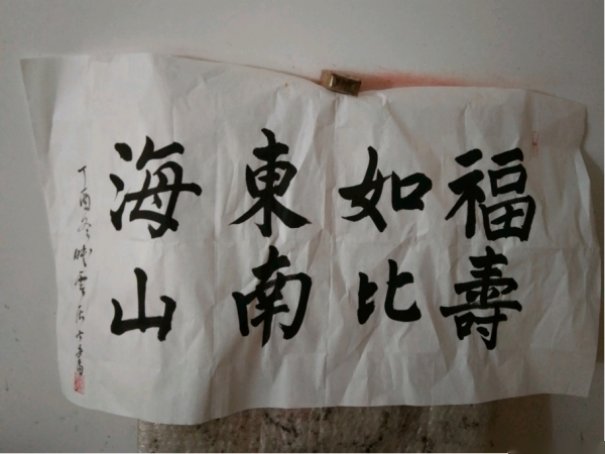 福壽
如比
東南
海山
丁酉冬